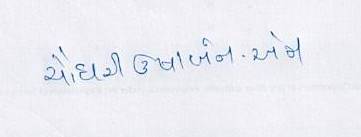 ચૌધરી ઉષાબેન. એમ